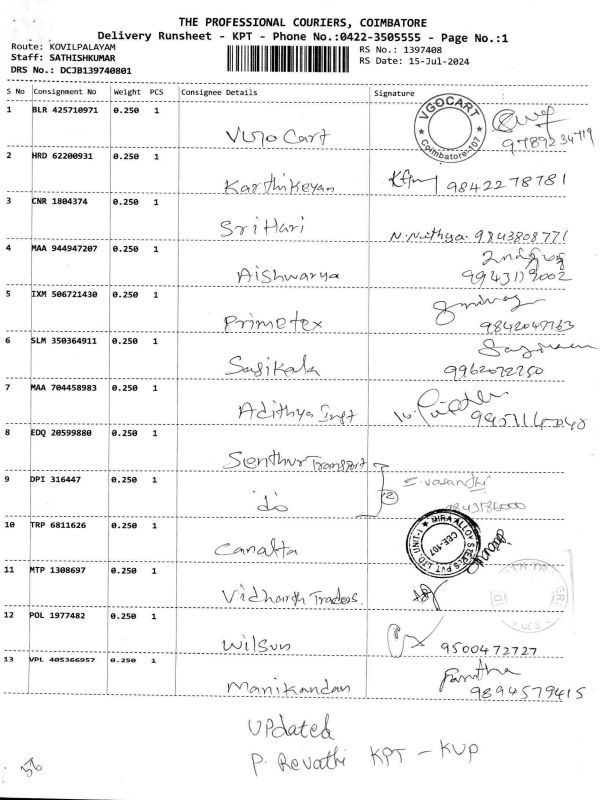 THE PROFESSIONAL COURIERS, COIMBATORE
Delivery Runsheet - KPT - Phone No.:0422-3505555 - Page No.:1
Route: KOVILPALAYAM RS No.: 1397408
Staff: SATHISHKUMAR RS Date: 15-Jul-2024
DRS No.: DCJB139740801
S No Consignment No Weight PCS Consignee Details Signature
1 BLR 425710971 0.250 1
VGOCART
Coimbatore-107
Vgo Cart 9789234719
2 HRD 62200931 0.250 1
KarthiKeyan 9842278781
3 CNR 1804374 0.250 1
SriHari N.Nithya. 9843808771
4 MAA 944947207 0.250 1
Aishwarya 9943119002
5 IXM 506721430 0.250 1
Primetex 9842047163
6 SLM 350364911 0.250 1
Sasikala 9962072250
7 MAA 704458983 0.250 1
Adithya Inst
8 EDQ 20599880 0.250 1
Senthur Transport
9 DPI 316447 0.250 1
do (2) S.Vasanthi
9843586000
10 TRP 6811626 0.250 1
MIRA ALLOY STEELS PVT LTD. UNIT-I
CBE-107
11 MTP 1308697 0.250 1
Vidharsh Traders
12 POL 1977482 0.250 1
Wilson 9500472727
13 VPL 405366957 0.250 1
Manikandan 9894579415
Updated
P. Revathi KPT - KVP